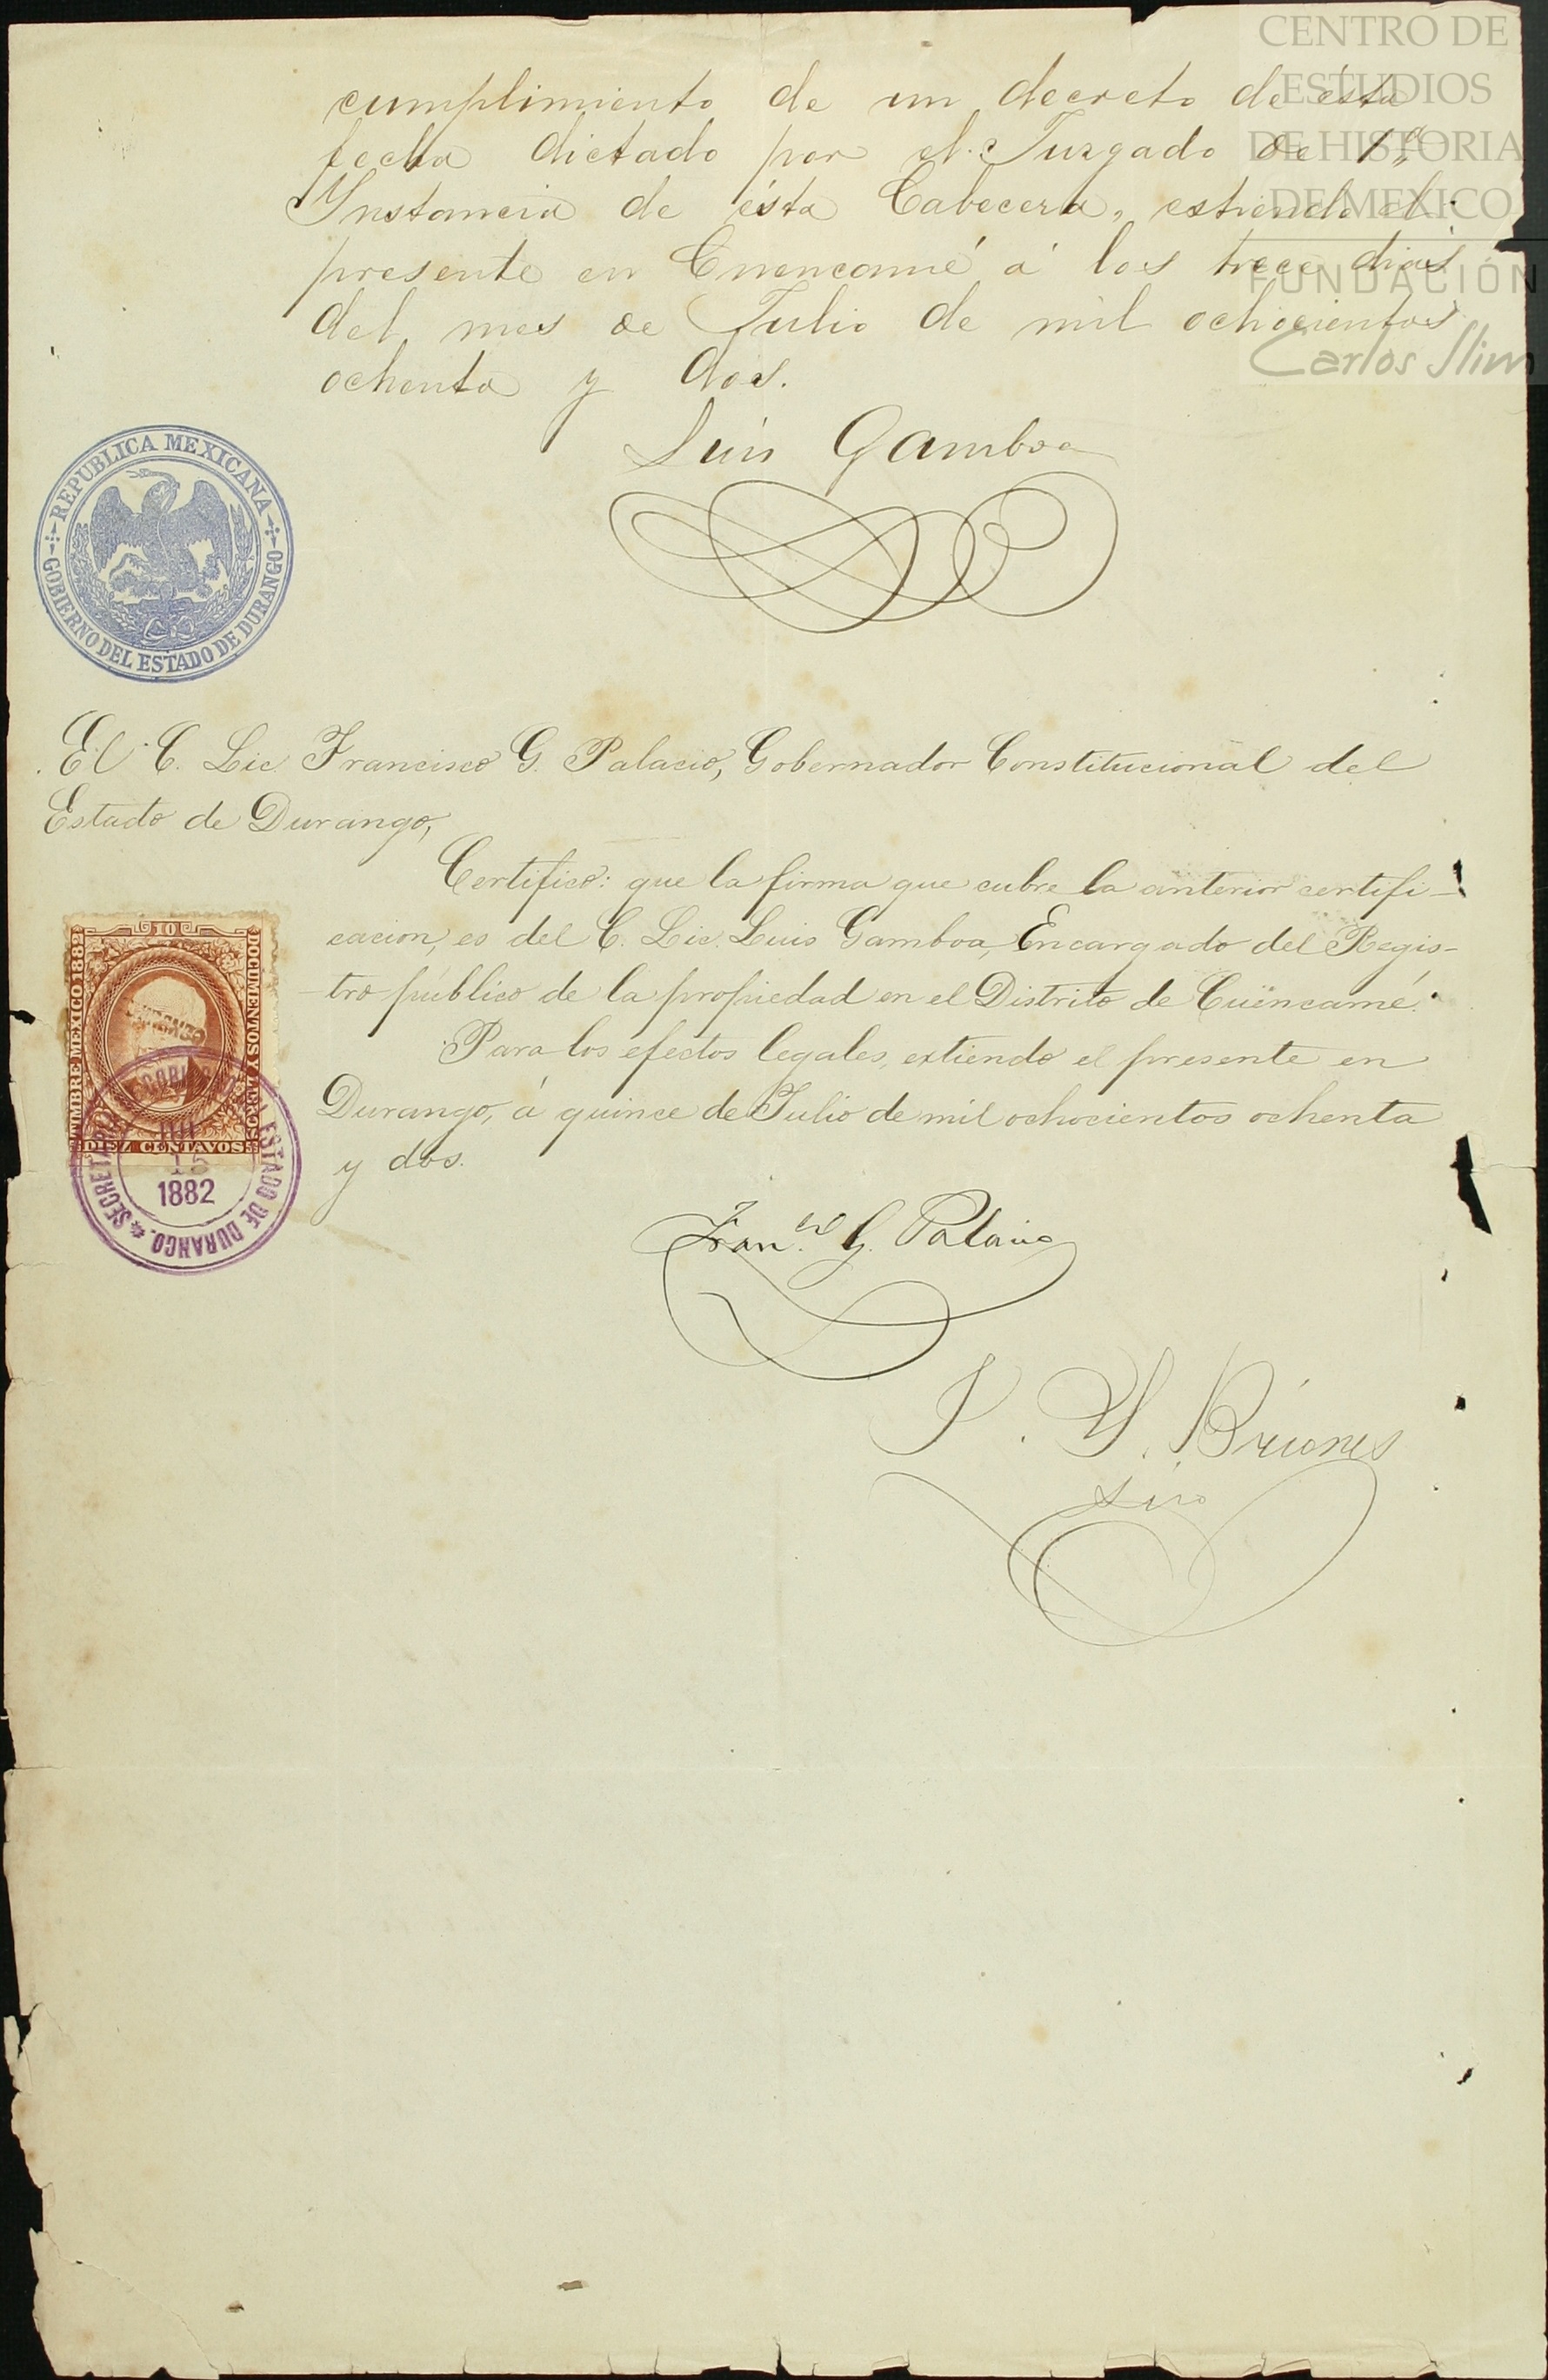 CENTRO DE
ESTUDIOS
DE HISTORIA
DE MEXICO
FUNDACIÓN
Carlos Slim
cumplimiento de un decreto de ésta
fecha dictado por el Juzgado de 1ª
Ynstancia de ésta Cabecera, estiendo el
presente en Cuencamé á los trece dias
del mes de Julio de mil ochocientos
ochenta y dos.
Luis Gamboa
REPUBLICA MEXICANA
GOBIERNO DEL ESTADO DE DURANGO
El C. Lic. Francisco G. Palacio, Gobernador Constitucional del
Estado de Durango,
Certifico: que la firma que cubre la anterior certifi-
cacion, es del C. Lic. Luis Gamboa, Encargado del Regis-
tro público de la propiedad en el Distrito de Cuencamé.
Para los efectos legales, extiendo el presente en
Durango, á quince de Julio de mil ochocientos ochenta
y dos.
10
TIMBRE MEXICO 1882
DOCUMENTOS Y LIBROS
DIEZ CENTAVOS
ESTADO DE DURANGO.
15
1882
Fran.co G. Palacio
Y. Briones
Srio